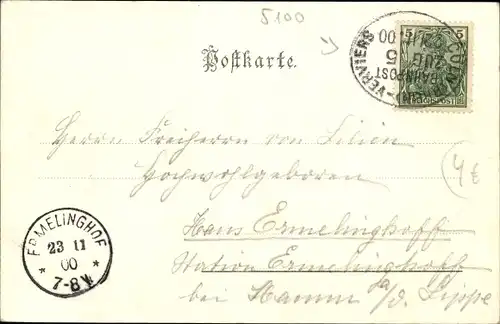 5100
Postkarte.
CÖLN - VERVIERS
BAHNPOST
ZUG 5
00
5 5
REICHSPOST
Herrn Freiherrn von Lilien
Hochwohlgeboren
4€
Haus Ermelinghoff
Station Ermelinghoff
bei Hamm a/d. Lippe
ERMELINGHOF
23 11
00
* 7-8V. *